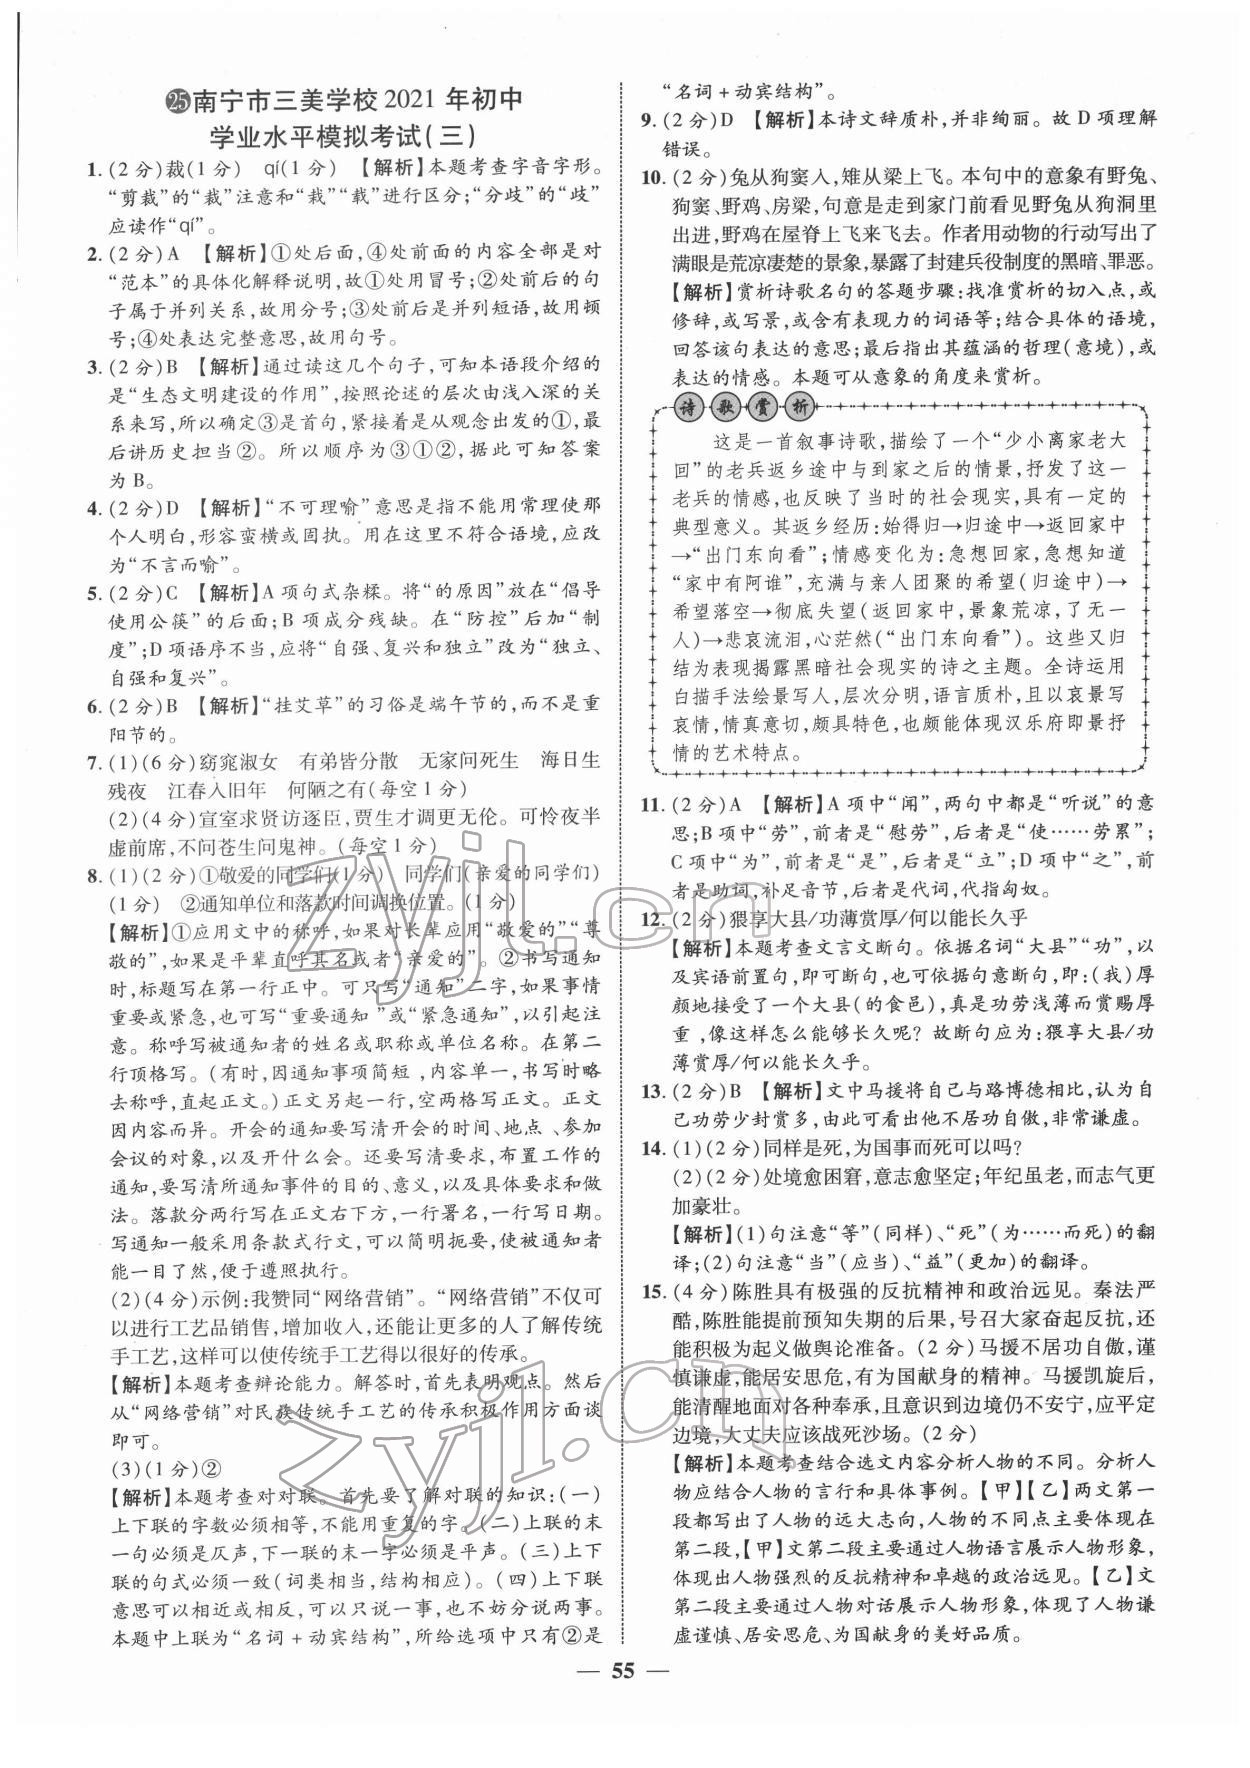 ㉕南宁市三美学校2021年初中
学业水平模拟考试(三)
1.(2分)裁(1分) qí(1分) 【解析】本题考查字音字形。
“剪裁”的“裁”注意和“栽”“载”进行区分;“分歧”的“歧”
应读作“qí”。
2.(2分)A 【解析】①处后面,④处前面的内容全部是对
“范本”的具体化解释说明,故①处用冒号;②处前后的句
子属于并列关系,故用分号;③处前后是并列短语,故用顿
号;④处表达完整意思,故用句号。
3.(2分)B 【解析】通过读这几个句子,可知本语段介绍的
是“生态文明建设的作用”,按照论述的层次由浅入深的关
系来写,所以确定③是首句,紧接着是从观念出发的①,最
后讲历史担当②。所以顺序为③①②,据此可知答案
为B。
4.(2分)D 【解析】“不可理喻”意思是指不能用常理使那
个人明白,形容蛮横或固执。用在这里不符合语境,应改
为“不言而喻”。
5.(2分)C 【解析】A项句式杂糅。将“的原因”放在“倡导
使用公筷”的后面;B项成分残缺。在“防控”后加“制
度”;D项语序不当,应将“自强、复兴和独立”改为“独立、
自强和复兴”。
6.(2分)B 【解析】“挂艾草”的习俗是端午节的,而不是重
阳节的。
7.(1)(6分)窈窕淑女 有弟皆分散 无家问死生 海日生
残夜 江春入旧年 何陋之有(每空1分)
(2)(4分)宣室求贤访逐臣,贾生才调更无伦。可怜夜半
虚前席,不问苍生问鬼神。(每空1分)
8.(1)(2分)①敬爱的同学们(1分) 同学们(亲爱的同学们)
(1分) ②通知单位和落款时间调换位置。(1分)
【解析】①应用文中的称呼,如果对长辈应用“敬爱的”“尊
敬的”,如果是平辈直呼其名或者“亲爱的”。②书写通知
时,标题写在第一行正中。可只写“通知”二字,如果事情
重要或紧急,也可写“重要通知”或“紧急通知”,以引起注
意。称呼写被通知者的姓名或职称或单位名称。在第二
行顶格写。(有时,因通知事项简短,内容单一,书写时略
去称呼,直起正文。)正文另起一行,空两格写正文。正文
因内容而异。开会的通知要写清开会的时间、地点、参加
会议的对象,以及开什么会。还要写清要求,布置工作的
通知,要写清所通知事件的目的、意义,以及具体要求和做
法。落款分两行写在正文右下方,一行署名,一行写日期。
写通知一般采用条款式行文,可以简明扼要,使被通知者
能一目了然,便于遵照执行。
(2)(4分)示例:我赞同“网络营销”。“网络营销”不仅可
以进行工艺品销售,增加收入,还能让更多的人了解传统
手工艺,这样可以使传统手工艺得以很好的传承。
【解析】本题考查辩论能力。解答时,首先表明观点。然后
从“网络营销”对民族传统手工艺的传承积极作用方面谈
即可。
(3)(1分)②
【解析】本题考查对对联。首先要了解对联的知识:(一)
上下联的字数必须相等,不能用重复的字。(二)上联的末
一句必须是仄声,下一联的末一字必须是平声。(三)上下
联的句式必须一致(词类相当,结构相应)。(四)上下联
意思可以相近或相反,可以只说一事,也不妨分说两事。
本题中上联为“名词+动宾结构”,所给选项中只有②是
“名词+动宾结构”。
9.(2分)D 【解析】本诗文辞质朴,并非绚丽。故D项理解
错误。
10.(2分)兔从狗窦入,雉从梁上飞。本句中的意象有野兔、
狗窦、野鸡、房梁,句意是走到家门前看见野兔从狗洞里
出进,野鸡在屋脊上飞来飞去。作者用动物的行动写出了
满眼是荒凉凄楚的景象,暴露了封建兵役制度的黑暗、罪恶。
【解析】赏析诗歌名句的答题步骤:找准赏析的切入点,或
修辞,或写景,或含有表现力的词语等;结合具体的语境,
回答该句表达的意思;最后指出其蕴涵的哲理(意境),或
表达的情感。本题可从意象的角度来赏析。
诗歌赏析
这是一首叙事诗歌,描绘了一个“少小离家老大
回”的老兵返乡途中与到家之后的情景,抒发了这一
老兵的情感,也反映了当时的社会现实,具有一定的
典型意义。其返乡经历:始得归→归途中→返回家中
→“出门东向看”;情感变化为:急想回家,急想知道
“家中有阿谁”,充满与亲人团聚的希望(归途中)→
希望落空→彻底失望(返回家中,景象荒凉,了无一
人)→悲哀流泪,心茫然(“出门东向看”)。这些又归
结为表现揭露黑暗社会现实的诗之主题。全诗运用
白描手法绘景写人,层次分明,语言质朴,且以哀景写
哀情,情真意切,颇具特色,也颇能体现汉乐府即景抒
情的艺术特点。
11.(2分)A 【解析】A项中“闻”,两句中都是“听说”的意
思;B项中“劳”,前者是“慰劳”,后者是“使……劳累”;
C项中“为”,前者是“是”,后者是“立”;D项中“之”,前
者是助词,补足音节,后者是代词,代指匈奴。
12.(2分)猥享大县/功薄赏厚/何以能长久乎
【解析】本题考查文言文断句。依据名词“大县”“功”,以
及宾语前置句,即可断句,也可依据句意断句,即:(我)厚
颜地接受了一个大县(的食邑),真是功劳浅薄而赏赐厚
重,像这样怎么能够长久呢?故断句应为:猥享大县/功
薄赏厚/何以能长久乎。
13.(2分)B 【解析】文中马援将自己与路博德相比,认为自
己功劳少封赏多,由此可看出他不居功自傲,非常谦虚。
14.(1)(2分)同样是死,为国事而死可以吗?
(2)(2分)处境愈困窘,意志愈坚定;年纪虽老,而志气更
加豪壮。
【解析】(1)句注意“等”(同样)、“死”(为……而死)的翻
译;(2)句注意“当”(应当)、“益”(更加)的翻译。
15.(4分)陈胜具有极强的反抗精神和政治远见。秦法严
酷,陈胜能提前预知失期的后果,号召大家奋起反抗,还
能积极为起义做舆论准备。(2分)马援不居功自傲,谨
慎谦虚,能居安思危,有为国献身的精神。马援凯旋后,
能清醒地面对各种奉承,且意识到边境仍不安宁,应平定
边境,大丈夫应该战死沙场。(2分)
【解析】本题考查结合选文内容分析人物的不同。分析人
物应结合人物的言行和具体事例。【甲】【乙】两文第一
段都写出了人物的远大志向,人物的不同点主要体现在
第二段,【甲】文第二段主要通过人物语言展示人物形象,
体现出人物强烈的反抗精神和卓越的政治远见。【乙】文
第二段主要通过人物对话展示人物形象,体现了人物谦
虚谨慎、居安思危、为国献身的美好品质。
— 55 —
zyjl.cn
zyjl.cn